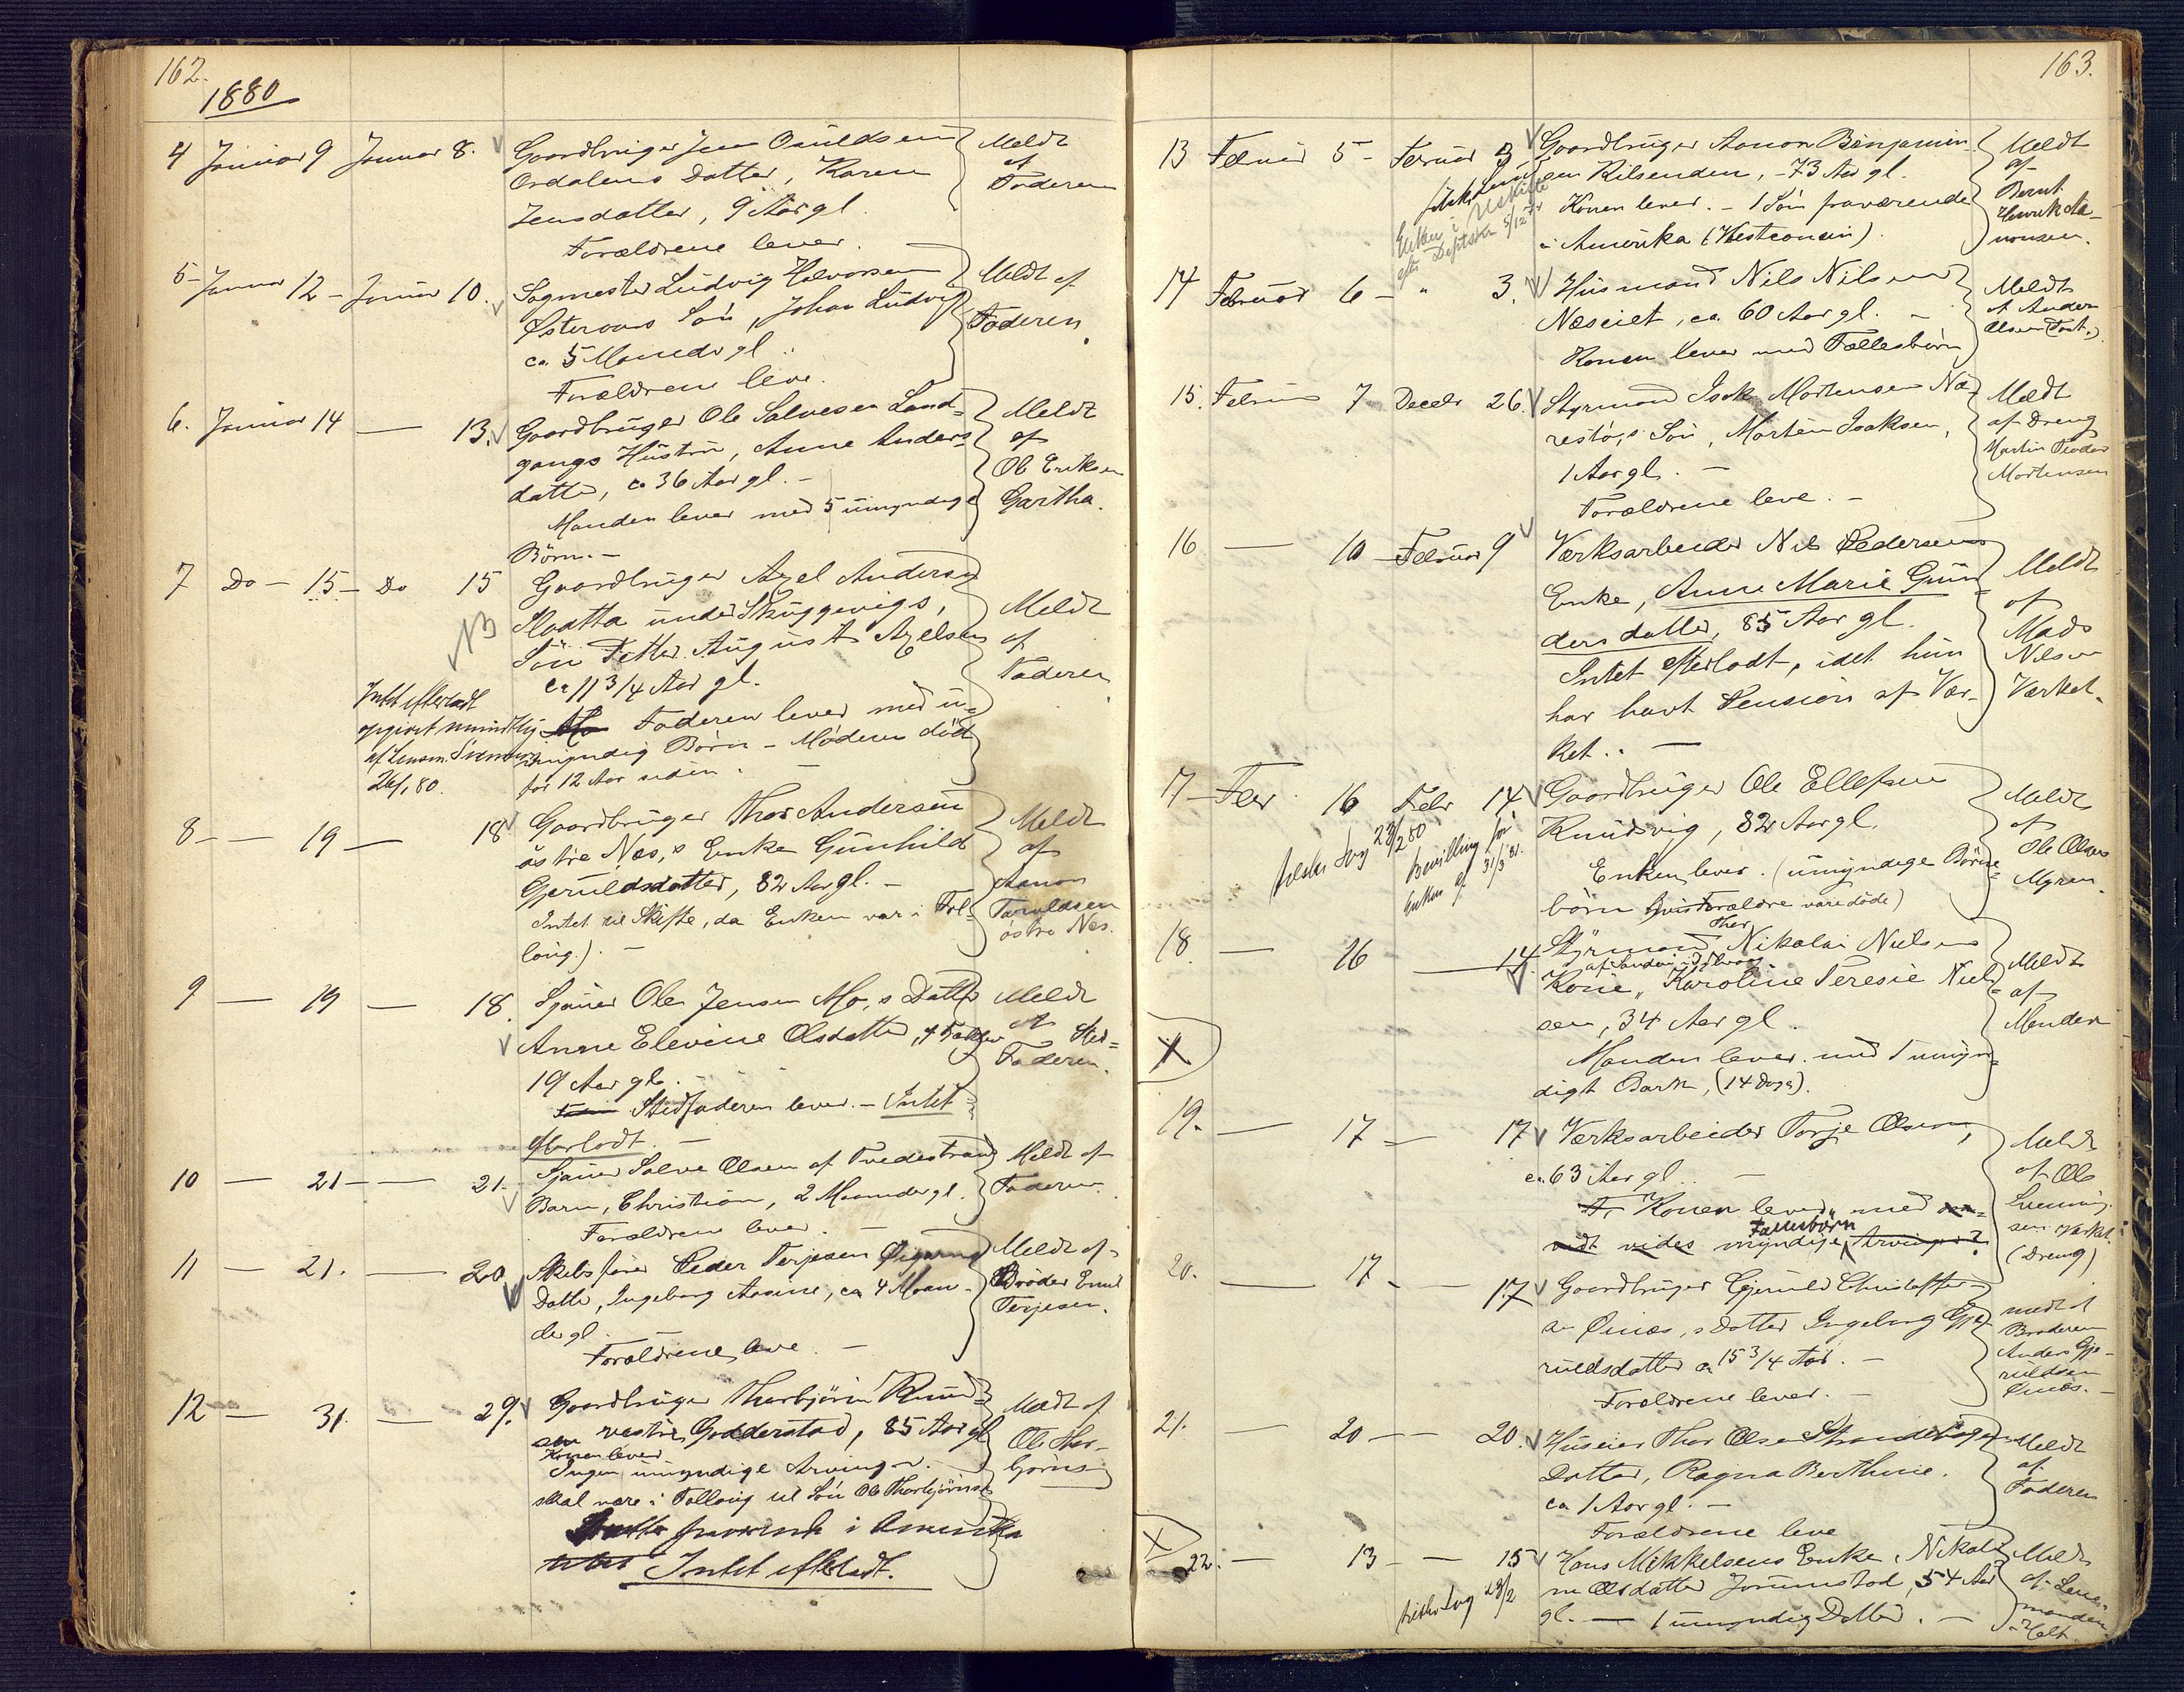 162.
1880
4 Januar 9 Januar 8. Gaardbruger Jens Osuldsen
Ordalens Datter, Karen
Jensdatter, 9 Aar gl.
Forældrene lever.
Meldt
af
Faderen
5 Januar 12 - Januar 10. Sagmester Ludvig Halvorsen
Østeraas Søn, Johan Ludvig
ca. 5 Maaneder gl.
Forældrene leve.
Meldt af
Faderen.
6. Januar 14 — 13. Gaardbruger Ole Salvesen Land-
gangs Hustru, Anne Anders
datter, ca 36 Aar gl. -
Manden lever med 5 umyndige
Børn. -
Meldt
af
Ole Eriksen
Gartha.
7 Do - 15 - Do 15 Gaardbruger Axel Anders
NB
Skuggevigs,
Søn Petter August Axelsen
ca 11 3/4 Aar gl.
Faderen lever med u-
myndig Børn - Moderen död
for 12 Aar siden.
Intet efterladt
opgivet mundtlig
af Lensm.
26/1 80.
Meldt
af
Faderen
8 — 19 — 18 Gaardbruger Thor Andersen
östre Næs,s Enke Gunhild
Gjeruldsdatter, 82 Aar gl. -
Intet til Skifte, da Enken var i Fol-
laug). -
Meldt
af
Aanon
Taraldsen
östre Næs.
9 — 19 — 18. Ole Jensen Mo,s Datter
Anne Elevine Olsdatter,
19 Aar gl. -
Stedfaderen lever. - Intet
efterladt. -
Meldt
af
Sted-
Faderen.
10 — 21 — 21. Salve Olsen af Tvedestrand
Barn, Christian, 2 Maaneder gl.
Forældrene lever. -
Meldt af
Faderen.
11 — 21. — 20 Skibsfører Peder Terjesen
Datter, Ingeborg Aasine, ca 4 Maan-
der gl. -
Forældrene leve. -
Meldt af
Broder Emil
Terjesen.
12 — 31. — 29. Gaardbruger Thorbjörn Knud-
sen vestre Godderstad, 85 Aar gl
Konen lever
Ingen umyndige Arvinger. -
skal være i Follaug til Søn Ole Thorbjörnsen
fraværende i Amerika
Intet efterladt.
Meldt af
Ole Thor-
björns-
163.
13 Februar 5 - Februar 3. Gaardbruger Aanon Benjamin-
sen Kilsenden, - 73 Aar gl.
Konen lever. - 1 Søn fraværende
i Amerika (Westconsin).
Enken i Uskifte
5/12
Meldt
af
Bernt
Henrik Aa-
nonsen.
14 Februar 6 - " 3. Husmand Nils Nilsen
Næseiet, ca. 60 Aar gl. -
Konen lever med Fællesbörn
Meldt
af Anders
Olsen
15. Februar 7 Decebr 26. Styrmand Isak Mortensen Næ-
restö,s Søn, Morten Isaksen,
1 Aar gl. -
Forældrene leve. -
Meldt
af Dreng
Martin Teodor
Mortensen
16 — 10 - Februar 9 Værksarbeider Nils Pedersens
Enke, Anne Marie Gun-
dersdatter, 85 Aar gl.
Intet efterladt, idet hun
har havt Pension af Vær-
ket. . —
Meldt
af
Mads
Nilsen
Værket.
17 - Febr 16 Febr 14 Gaardbruger Ole Ellefsen
Knudsvig, 82 Aar gl.
Enken lever. (umyndige Börne-
börn hvis Forældre vare döde)
23/2 80
Bevilling for
Enken af 31/3 81.
Meldt
af
Ole Olsen
Myren.
18. — 16 — 14. Styrmand Thor Nikolai Nielsens
Kone, Karoline Teresie Niel-
sen, 34 Aar gl.
Manden lever med 1 umyn-
digt Barn, (14 Dage).
X
Meldt
af
Manden
19. — 17 — 17 Værksarbeider Torje Olsen,
ca. 63 Aar gl. . -
Konen lever, med
vidt vides myndige Fællesbörn Arvinger?
Meldt
af Ole
Svenning-
sen Værket.
(Dreng)
20. — 17 - — 17 Gaardbruger Gjeruld Christoffer-
sen Øinæs,s Datter Ingeborg Gje-
ruldsdatter ca 15 3/4 Aar. -
Forældrene lever. -
meldt af
Broderen
Anders Gje-
ruldsen
Øinæs. -
21. — 20 - — 20. Huseier Thor Olsen Strandskogen
Datter, Ragna Berthine.
ca 1 Aar gl. -
Forældrene leve
Meldt
af
Faderen
X
22. — 13 - — 15 Hans Mikkelsens Enke, Nikoli-
ne Olsdatter Jorunnstad, 54 Aar
gl. — 1 umyndig Datter. -
23/2
Meldt
af Lens-
manden
Holt.